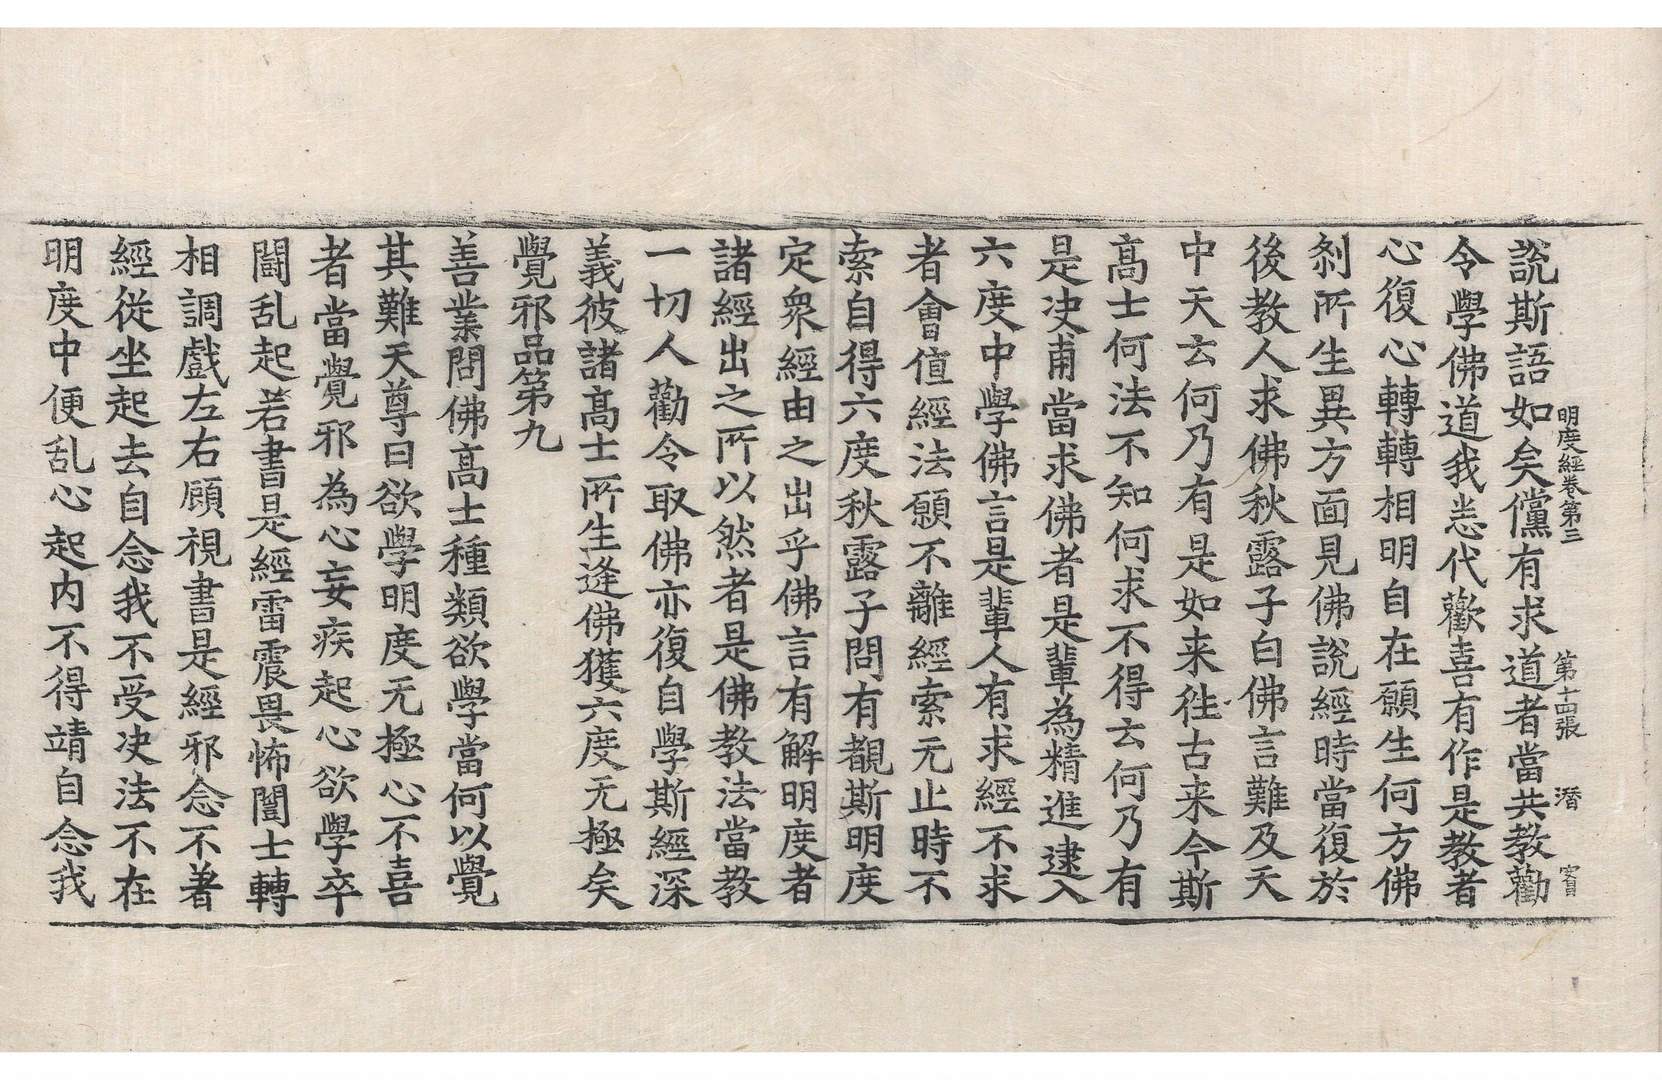 明度經卷第三 第十四張 潛 賓
說斯語如矣儻有求道者當共教勸
令學佛道我恙代歡喜有作是教者
心復心轉轉相明自在願生何方佛
剎所生異方面見佛說經時當復於
後教人求佛秋露子白佛言難及天
中天云何乃有是如来徃古来今斯
髙士何法不知何求不得云何乃有
是决甫當求佛者是輩為精進逮入
六度中學佛言是輩人有求經不求
者會值經法願不離經索无止時不
索自得六度秋露子問有覩斯明度
定衆經由之出乎佛言有解明度者
諸經出之所以然者是佛教法當教
一切人勸令取佛亦復自學斯經深
義彼諸髙士所生逢佛獲六度无極矣
覺邪品第九
善業問佛髙士種類欲學當何以覺
其難天尊曰欲學明度无極心不喜
者當覺邪為心妄疾起心欲學卒
鬪乱起若書是經雷震畏怖闓士轉
相調戲左右顧視書是經邪念不著
經從坐起去自念我不受决法不在
明度中便乱心起内不得靖自念我